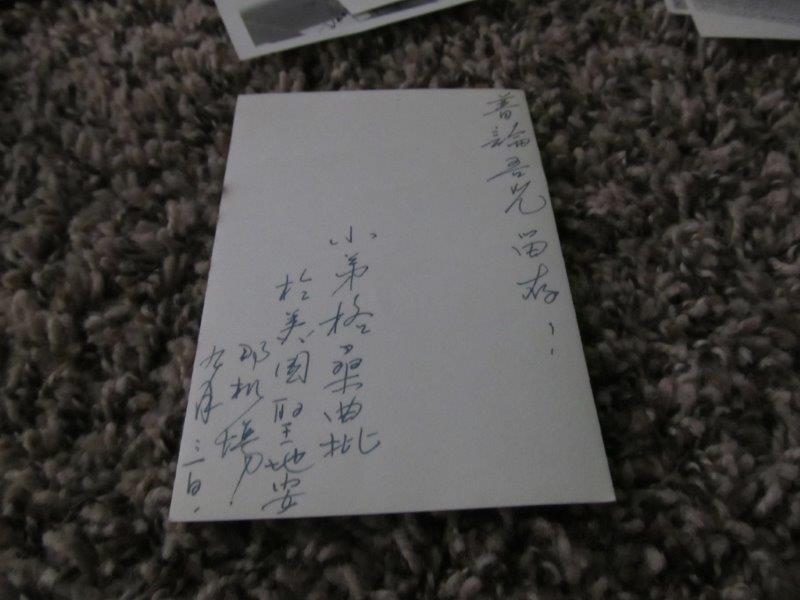 普論吾兄 留存！
小弟格桑曲批
於美國聖地安
那机場
九月三日.